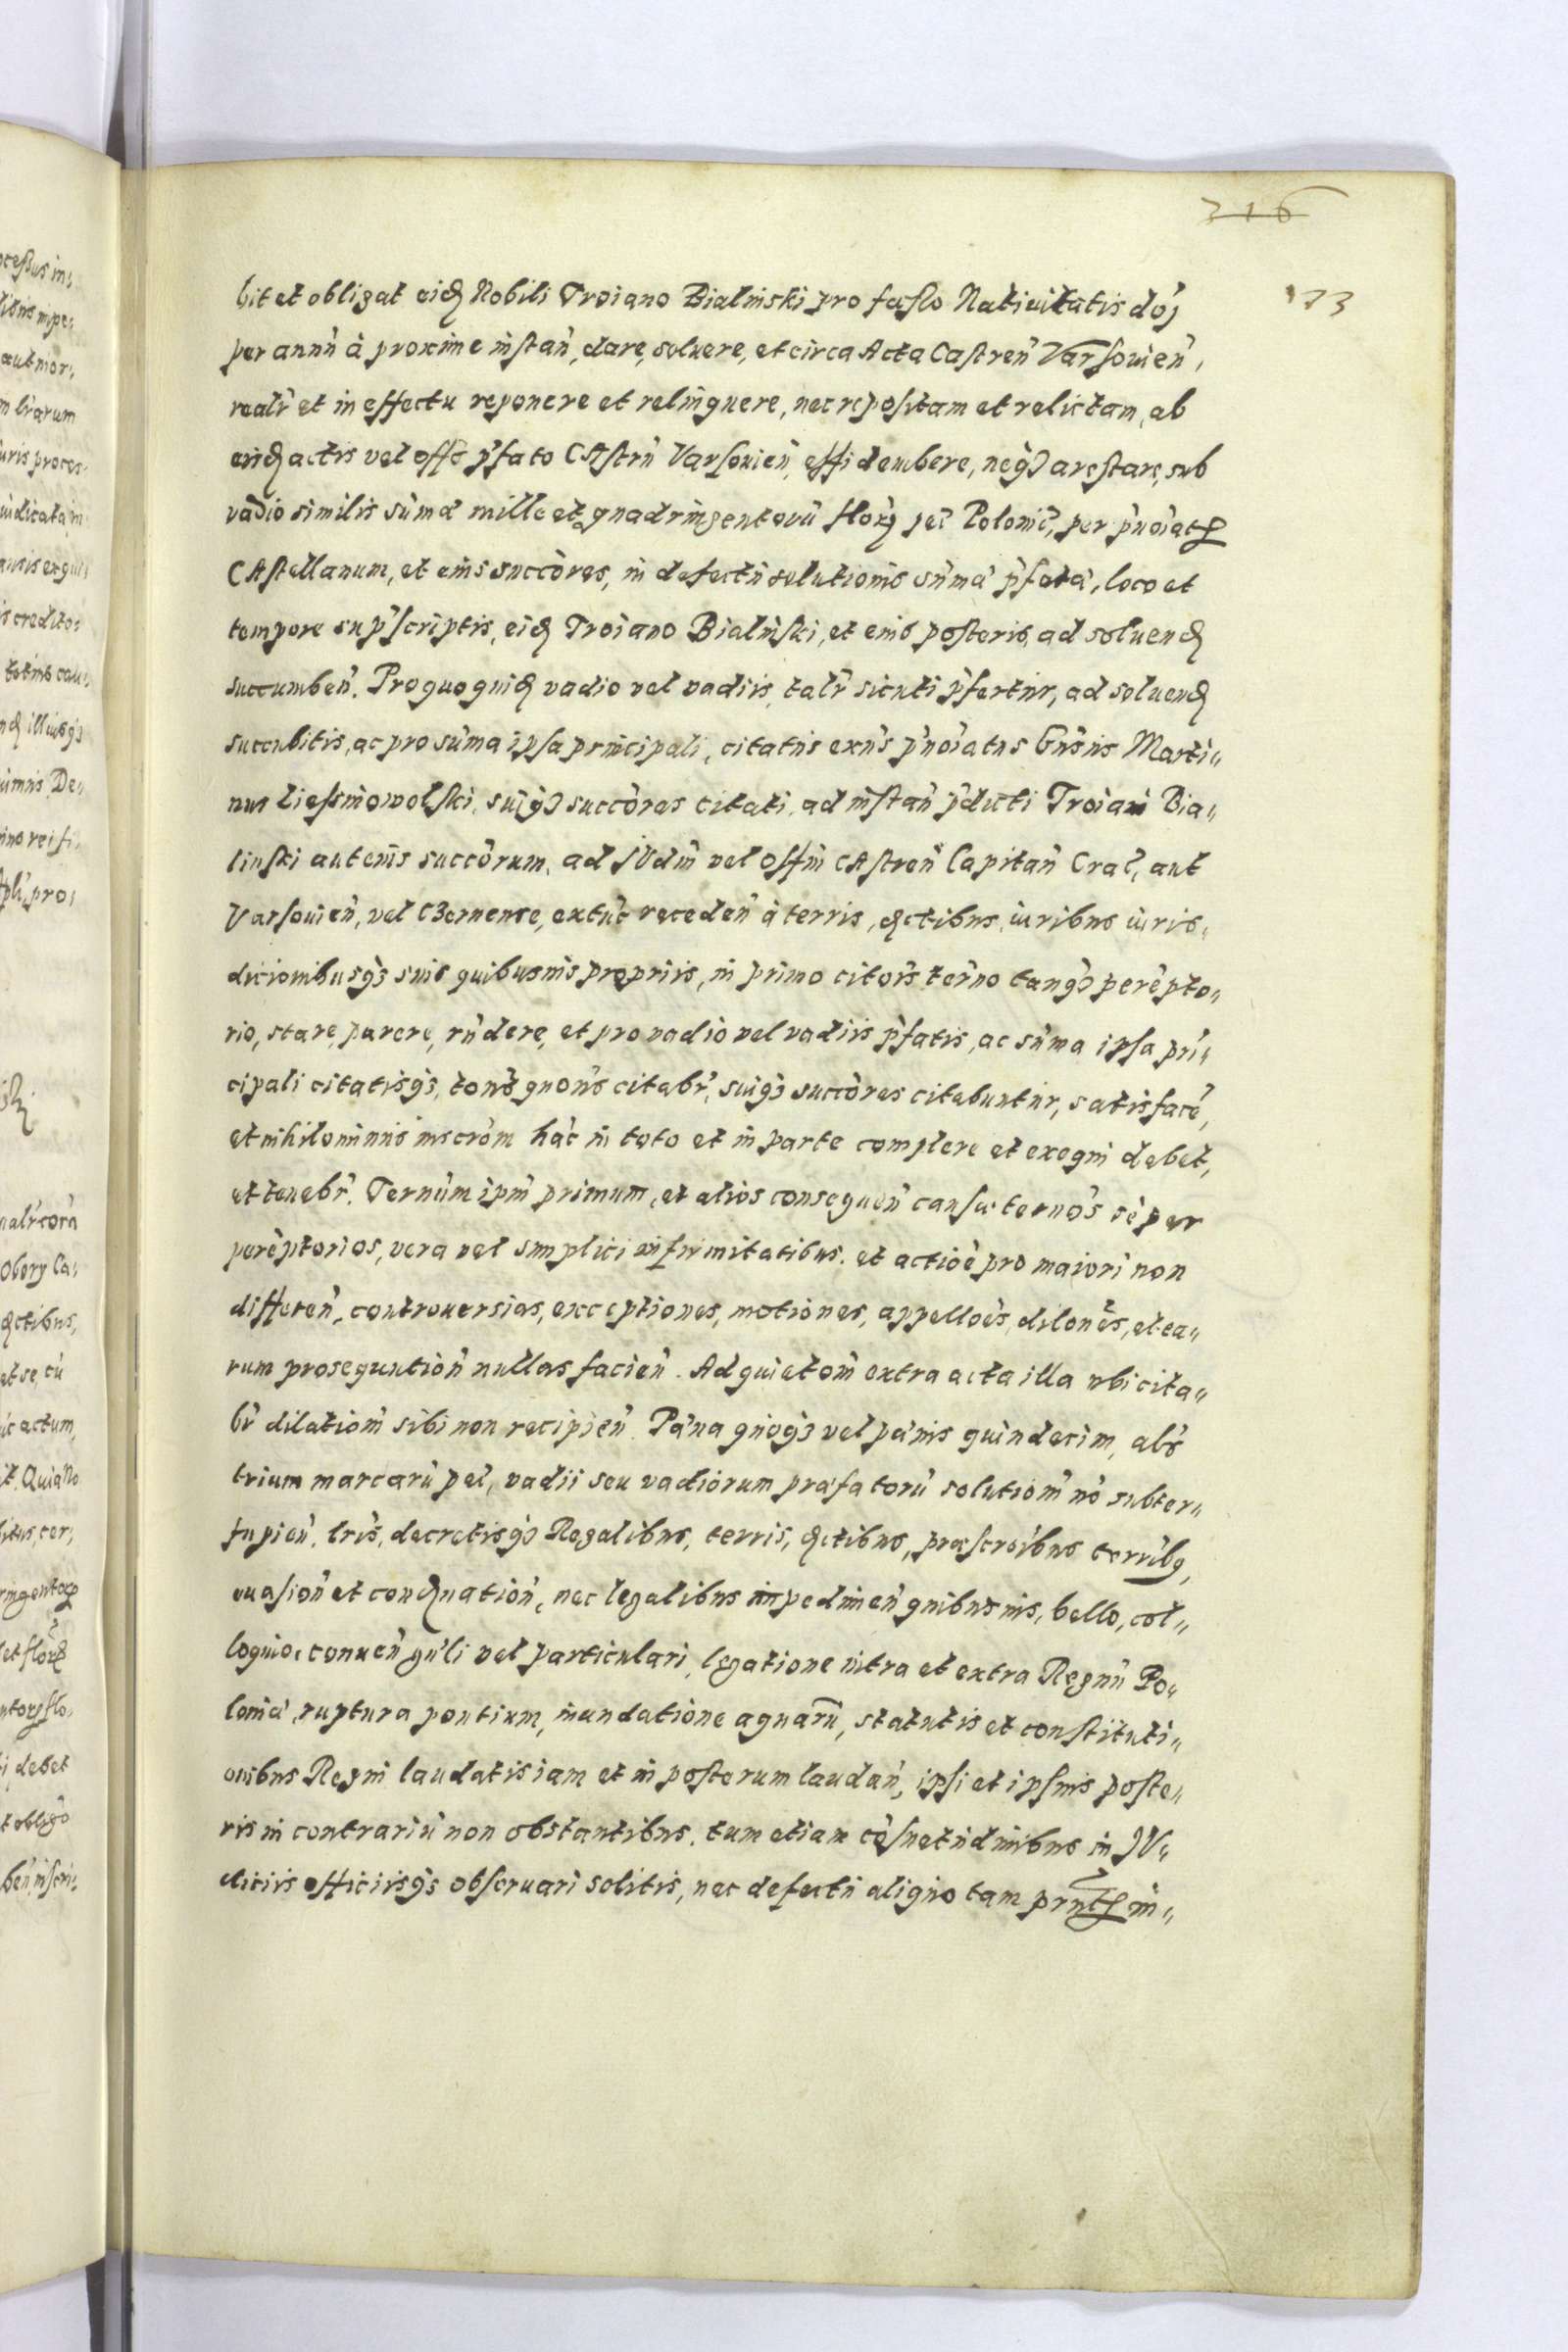 216
173
bit et obligat eidꝫ Nobili Troiano Bialinski pro festo Natiuitatis dōj
per annū à proxime instan̄, dare, soluere, et circa Acta Castren̄ Varsouien̄,
realr̄ et in effectu reponere et relinquere, nec repositam et relictam, ab
eisdꝫ actis vel offō p̄fato CAstrn̄ Varsouien̄, effidembere, neqꝫ arestare, sub
vadio similis sūmæ mille et quadringentorū florꝫ pec̄ Polonic̄, per p̄noīatꝫ
CAstellanum, et eius succōres, in defectū solutionis sūmæ p̄fatæ, loco et
tempore sup̄scriptis, eidꝫ Troiano Bialinski, et eius posteris, ad soluendꝫ
succumben̄. Pro quo quidꝫ vadio vel vadiis, talr̄ sicuti p̄fertur, ad soluendꝫ
succubitis, ac pro sūma ipsa principali, citatus exn̄s p̄noīatus Gn̄sus Marti„
nus Liessniowolski, suiqꝫ succōres citati, ad instan̄ p̄dicti Troiani Bia„
linski aut eius succōrum, ad JVdm̄ vel Offm̄ CAstren̄ Capitan̄ Crac̄, aut
Varsouien̄, vel CZernense, extūc receden̄ à terris, dꝫctibus, iuribus iuris„
dicionibusqꝫ suis quibusuis propriis, in primo citoīs ter̄no tanqꝫ perēpto„
rio, stare, parere, rn̄dere, et pro vadio vel vadiis p̄fatis, ac sūma ipsa prin„
cipali citatisqꝫ, totiēs quoties citabr̄, suiqꝫ succōres citabuntur, satisfacē,
et nihilominus inscrōm hāc in toto et in parte complere et exequi debet,
et tenebr̄. Ternūm ipm̄ primum, et alios consequen̄ causæ ternōs sēper
perēptorios, vera vel simplici infirmitatibus, et actiōe pro maiori non
differen̄, controuersias, exceptiones, motiones, appellōes, dilonēs, et ea„
rum prosequution̄ nullas facien̄. Ad quietom̄ extra acta illa vbi cita„
br̄ dilatiom̄ sibi non recipien̄. Pæna quoqꝫ vel pænis quindecim, als̄
trium marcarū pec̄, vadii seu vadiorum præfatorū solutiom̄ nō subter„
fugien̄, lris̄, decretisqꝫ Regalibus, terris, dꝫctibus, præscrōibus terrībꝫ,
euasion̄ et condꝫnation̄, nec legalibus impedimen̄ quibusuis, bello, col„
loquio, conuen̄ gn̄li vel particulari, legatione intra et extra Regnū Po„
loniæ, ruptura pontium, inundatione aquarū, statutis et constituti„
onibus Regni laudatis iam et in posterum laudan̄, ipsi et ipsius poste„
ris in contrariū non obstantibus, tum etiam cōsuetudinibus in JV„
diciis officiisqꝫ obseruari solitis, nec defectu aliquo tam prn̄tꝫ in„